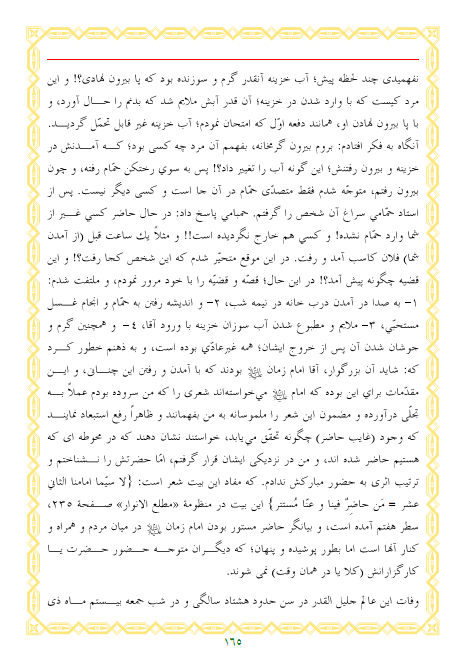 نفهمیدی چند لحظه پیش؛ آب خزینه آنقدر گرم و سوزنده بود که پا بیرون نهادی؟! و این
مرد کیست که با وارد شدن در خزینه؛ آن قدر آبش ملایم شد که بدنم را حـــال آورد، و
با پا بیرون نهادن او، همانند دفعه اوّل که امتحان نمودم؛ آب خزینه غیر قابل تحمّل گردیـــد.
آنگاه به فکر افتادم: بروم بیرون گرمخانه، بفهمم آن مرد چه کسی بود؛ کـــه آمـــدنش در
خزینه و بیرون رفتنش؛ این گونه آب را تغییر داد؟! پس به سوي رختکن حمّام رفته، و چون
بیرون رفتم، متوجّه شدم فقط متصدّی حمّام در آن جا است و کسی دیگر نیست. پس از
استاد حمّامي سراغ آن شخص را گرفتم. حمامي پاسخ داد: در حال حاضر کسي غـــیر از
شما وارد حمّام نشده! و کسي هم خارج نگردیده است!! و مثلاً یك ساعت قبل (از آمدن
شما) فلان کاسب آمد و رفت. در این موقع متحیّر شدم که این شخص کجا رفت؟! و این
قضیه چگونه پیش آمد؟! در این حال؛ قصّه و قضیّه را با خود مرور نمودم، و ملتفت شدم:
۱– به صدا در آمدن درب خانه در نیمه شب، ۲– و اندیشه رفتن به حمّام و انجام غـــسل
مستحبّي، ۳– ملایم و مطبوع شدن آب سوزان خزینه با ورود آقا، ٤– و همچنین گرم و
جوشان شدن آن پس از خروج ایشان؛ همه غیرعادّي بوده است، و به ذهنم خطور کـــرد
که: شاید آن بزرگوار، آقا امام زمان بودند که با آمدن و رفتن این چنـــانی، و ایـــن
مقدّمات براي این بوده که امام می‌خواسته‌اند شعری را که من سروده بودم عملاً بـــه
تجلّی درآورده و مضمون این شعر را ملموسانه به من بفهمانند و ظاهراً رفع استبعاد نماینـــد
که وجود (غایب حاضر) چگونه تحقّق می‌یابد، خواستند نشان دهند که در محوطه ای که
هستیم حاضر شده اند، و من در نزدیکی ایشان قرار گرفتم، امّا حضرتش را نـــشناختم و
ترتیب اثری به حضور مبارکش ندادم. که مفاد این بیت شعر است: {لا سیّما امامنا الثاني
عشر = مَن حاضرٌ فینا و عنّا مُستتر} این بیت در منظومة «مطلع الانوار» صـــفحة ۲۳۵،
سطر هفتم آمده است، و بیانگر حاضر مستور بودن امام زمان در میان مردم و همراه و
کنار آنها است اما بطور پوشیده و پنهان؛ که دیگـــران متوجـــه حـــضور حـــضرت یـــا
کارگزارانش (کلا یا در همان وقت) نمی شوند.
وفات این عالم جلیل القدر در سن حدود هشتاد سالگی و در شب جمعه بیـــستم مـــاه ذی
١٦٥